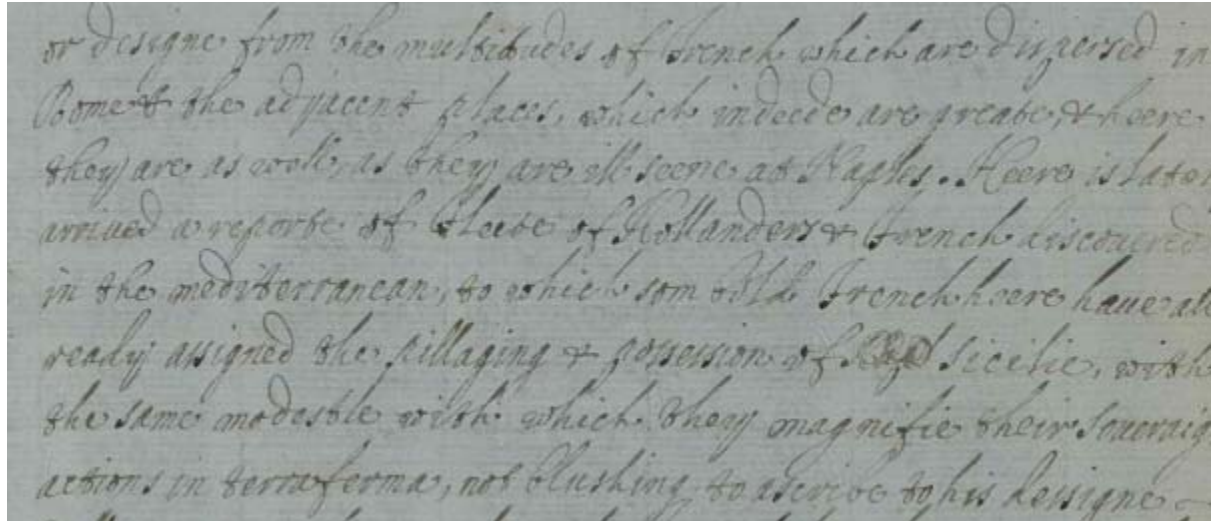 or designe from the multitudes of french which are dispersed in
Rome & the adjacent places, which indeede are greate, & heere
they are as well, as they are ill seene at Naples. Heere is late
arrived a reporte of fleete of Hollanders & french discouered
in the mediterranean, to which som french heere haue all
ready assigned the pillaging & possession of Sicilie, with
the same modestie with which they magnifie their soueraig
actions in terraferma, not blushing to ascribe to his dessigne